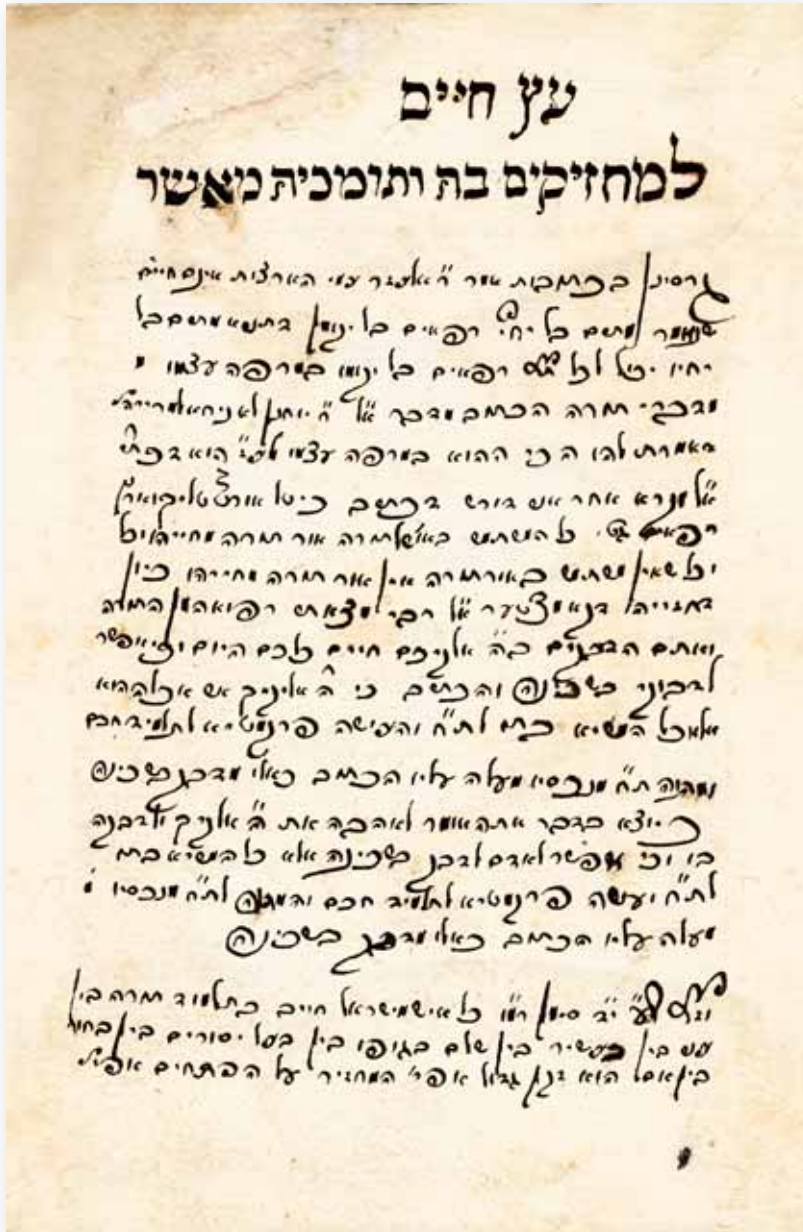 עץ חיים
למחזיקים בה ותומכיה מאשר
גרסינן בכתובות אמר ר״ אלעזר עמי הארצות אינם חיים
שנאמר מתים בל יחי׳ רפאים בל יקומו
יחיו יכול לכל רפאים בל יקומו במרפה עצמו
מדברי תורה הכתוב מדבר א״ל ר״ יוחנן לא ניחא
דאמרת להו הכי ההוא במרפה עצמו הוא דכתי׳
א״ל מקרא אחר אני דורש דכתיב כי טל אורות טליך וארץ
רפאים כל המשתמש תורה אור תורה מחייהו וכל
וכל שאין משתמש באור תורה אין אור תורה מחייהו כיון
דחזייה דקא מצטער א״ל רבי מצאתי רפואה מן התורה
ואתם הדבקים בה׳ אלקיכם חיים כלכם היום וכי אפשר
לדבוקי בשכינה והכתיב כי ה׳ אלקיך אש אכלה הוא
אלא כל המשיא בתו לת״ח והעושה פרקמטיא לתלמיד חכם
ומהנה ת״ח מנכסיו מעלה עליו הכתוב כאלו מדבק בשכינה
כיוצא בדבר אתה אומר לאהבה את ה׳ אלקיך ולדבקה
בו וכי אפשר לאדם לדבק בשכינה אלא כל המשיא בתו
לת״ח ועושה פרקמטיא לתלמיד חכם והמהנה לת״ח מנכסיו
מעלה עליו הכתוב כאלו מדבק בשכינה
י״ד סימן רמ״ו כל איש מישראל חייב בתלמוד תורה בין
עני בין עשיר בין שלם בגופו בין בעל יסורים בין בחור
בין זקן גדול אפי׳ המחזיר על הפתחים